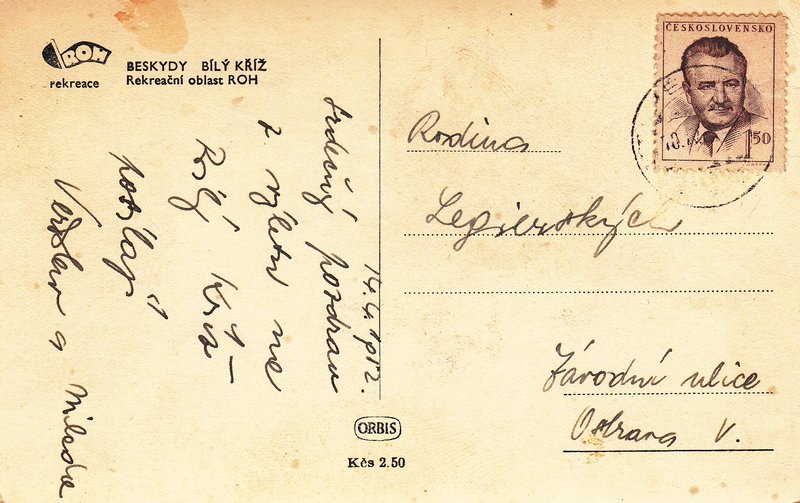 ROH
rekreace
BESKYDY BÍLÝ KŘÍŽ
Rekreační oblast ROH
14.4.1952.
Srdečný pozdrav
z výletu na
Bílý Kříž
posílají
a Milada
ČESKOSLOVENSKO
1.50
Rodina
Legierských
Závodní ulice
Ostrava V.
ORBIS
Kčs 2.50